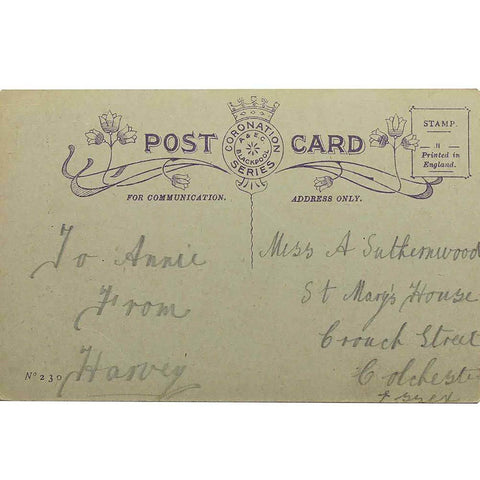 POST CARD
CORONATION SERIES
A & E C
BLACKPOOL
STAMP.
Printed in
England.
FOR COMMUNICATION.
ADDRESS ONLY.
To Annie
From
Harvey
Nº 230
Miss A Suthernwood
St Mary's House
Crouch Street
Colcheste